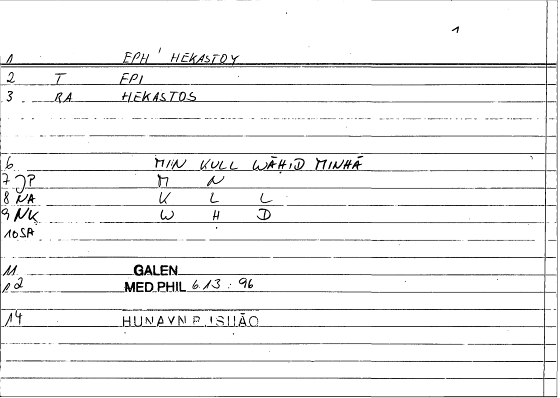 1
1 EPH' HEKASTOY
2 T EPI
3 RA HEKASTOS
6 MIN KULL WĀḤID MINHĀ
7 JP M N
8 NA K L L
9 NK W H D
10 SA
11 GALEN
12 MED.PHIL 6 13 : 96
14 HUNAYN B. ISḤĀQ